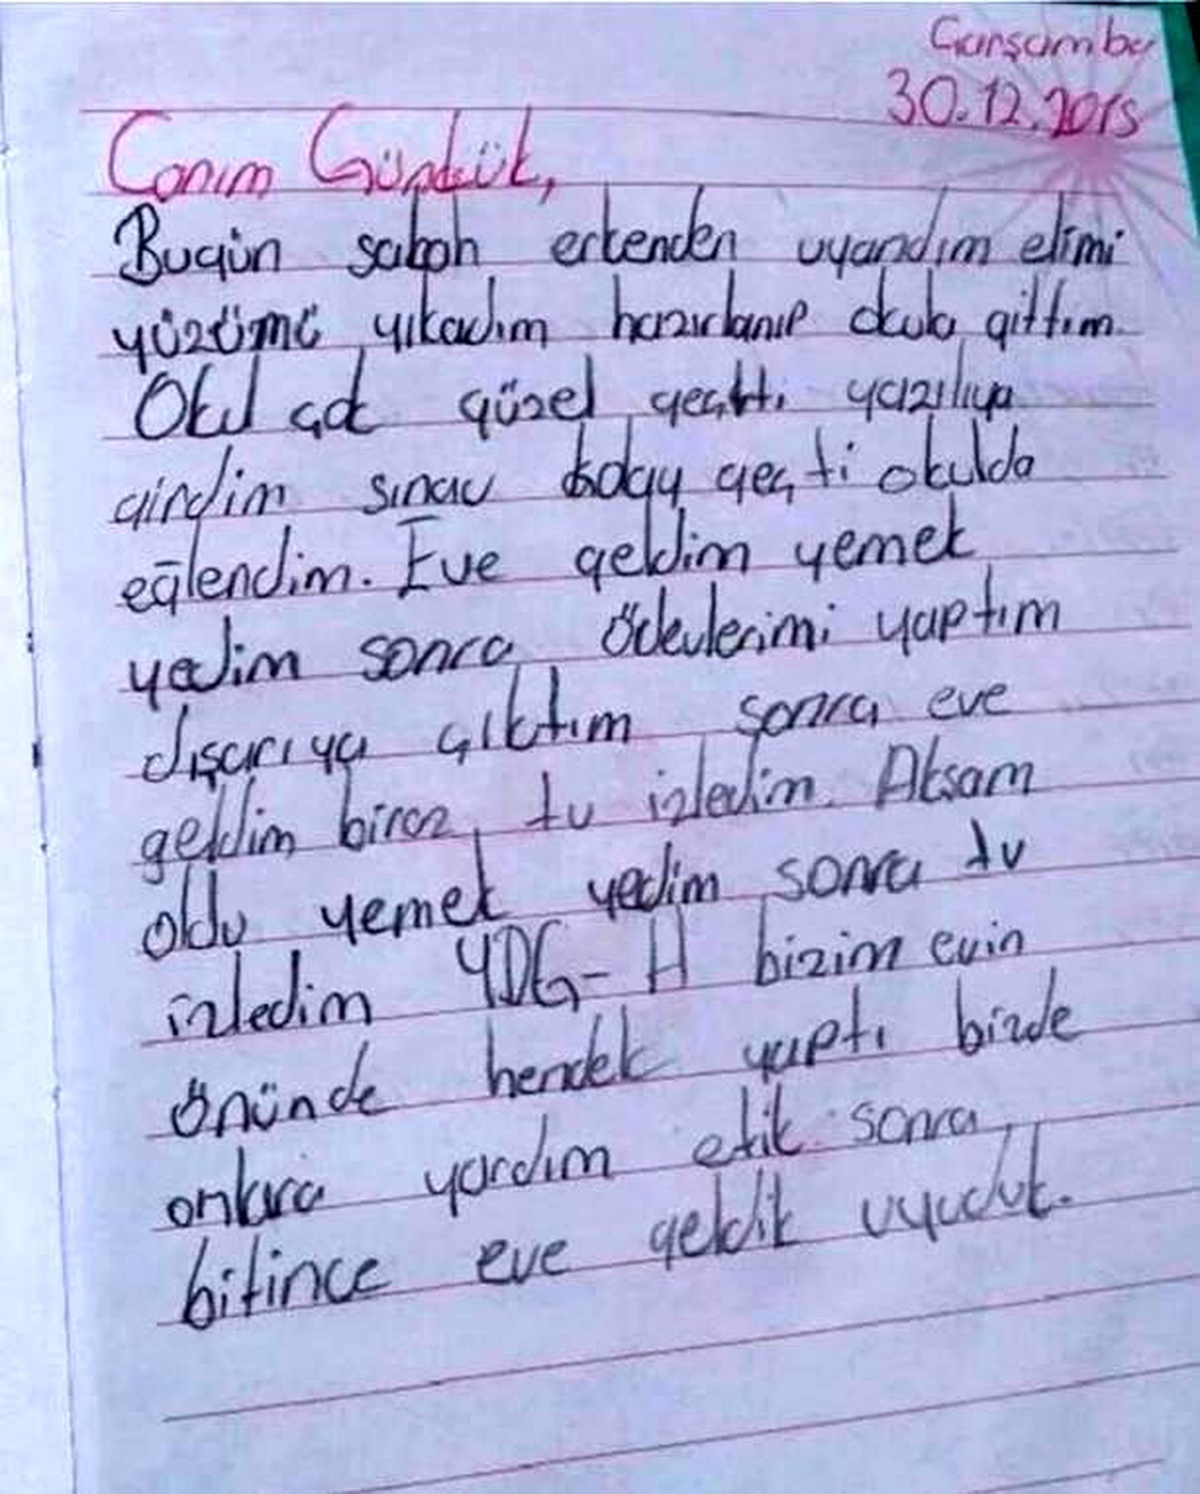 Çarşamba
30.12.2015
Canım Günlük,
Bugün sabah erkenden uyandım elimi
yüzümü yıkadım hazırlanıp okula gittim.
Okul çok güzel geçti yazılıya
girdim sınav kolay geçti okulda
eğlendim. Eve geldim yemek
yedim sonra ödevlerimi yaptım
dışarıya çıktım sonra eve
geldim biraz tv izledim. Akşam
oldu yemek yedim sonra tv
izledim YDG-H bizim evin
önünde hendek yaptı bizde
onlara yardım etik sonra
bitince eve geldik uyuduk.